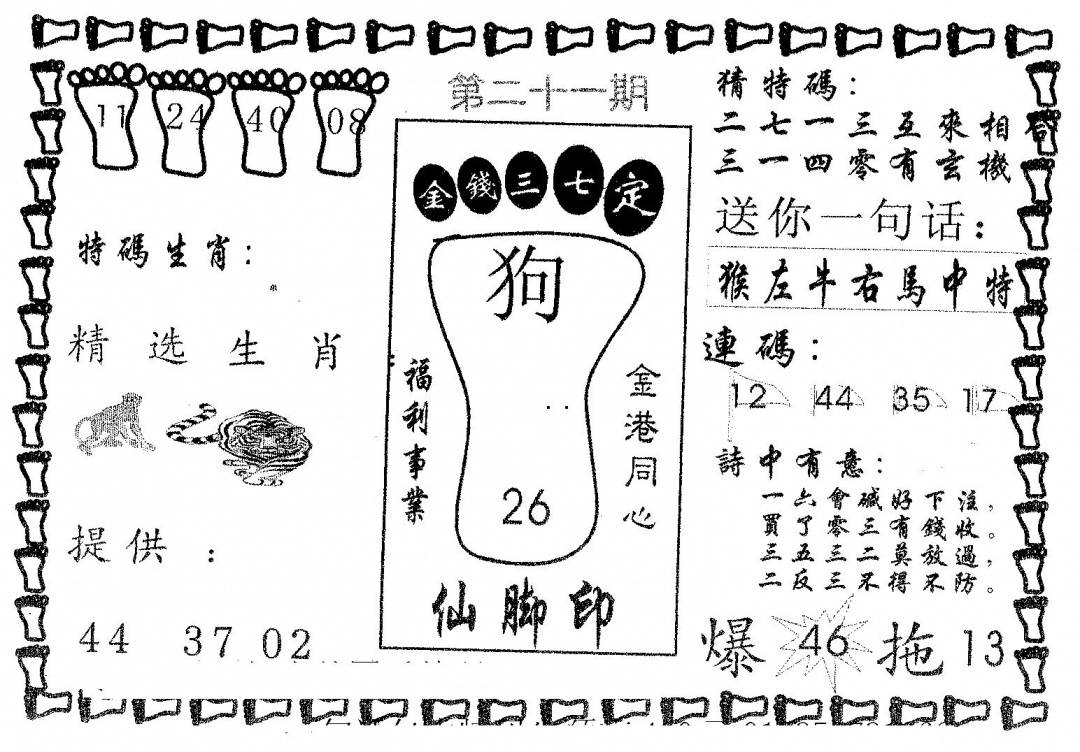 11 24 40 08
特碼生肖：
精选生肖：
提供：
44 37 02
第二十一期
金錢三七定
狗
26
福利事業
金港同心
仙脚印
猜特碼：
二七一三五來相合
三一四零有玄機
送你一句话：
猴左牛右馬中特
連碼：
12 44 35 17
詩中有意：
一六會碱好下注，
買了零三有錢收。
三五三二莫放過，
二反三不得不防。
爆 46 拖 13